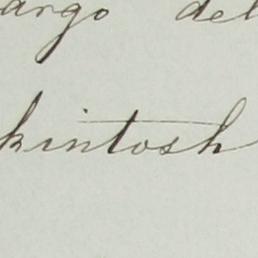 argo del
kintosh